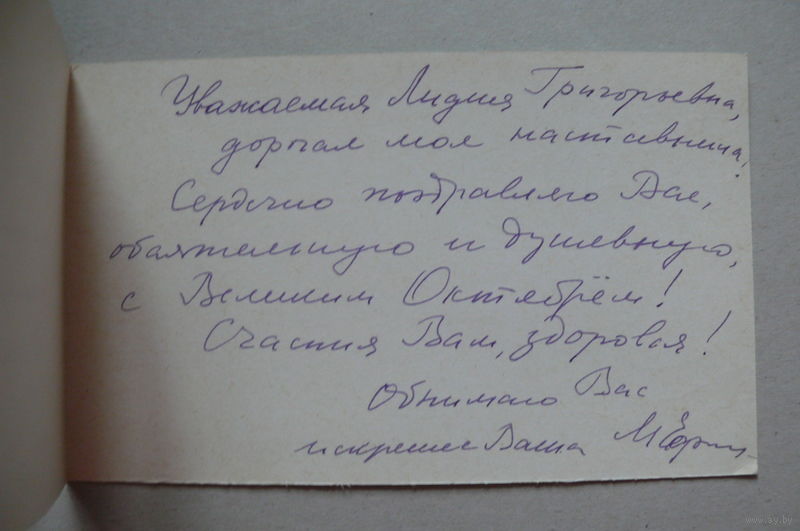 Уважаемая Лидия Григорьевна,
дорогая моя наставница!
Сердечно поздравляю Вас,
обаятельную и душевную,
с Великим Октябрём!
Счастия Вам, здоровья!
Обнимаю Вас
искренне Ваша
www.ay.by